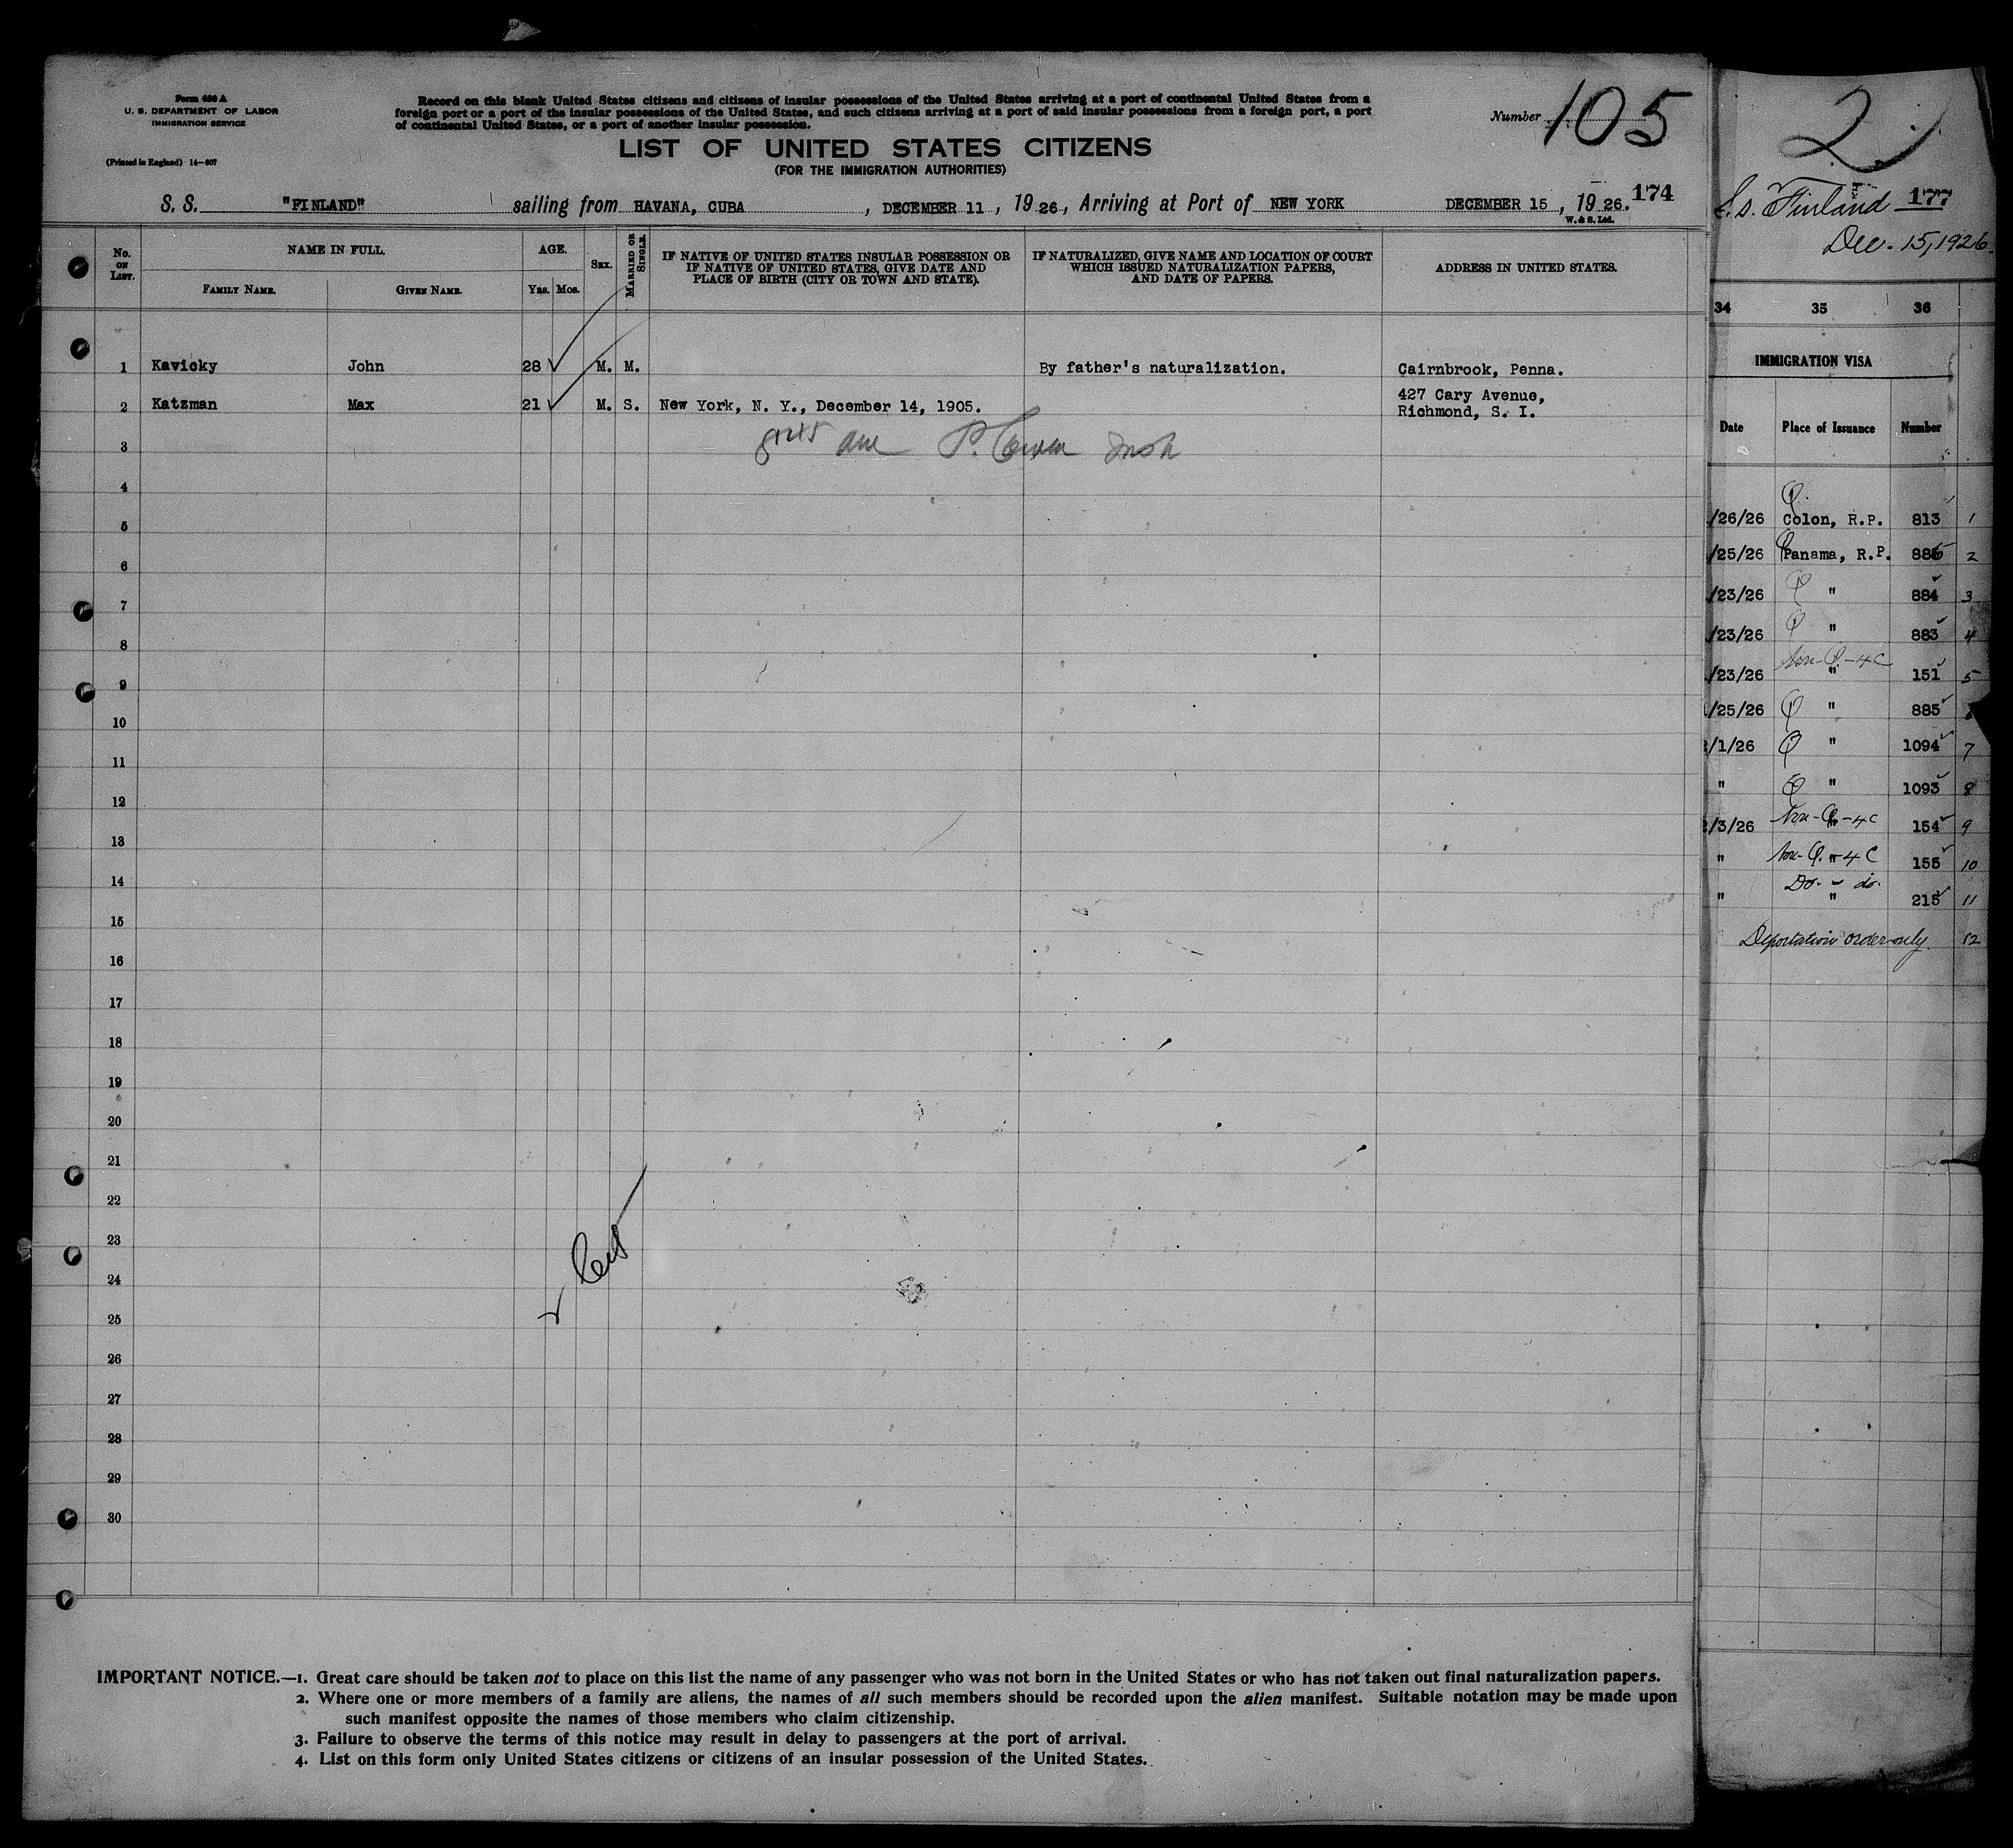 Form 630 A
U. S. DEPARTMENT OF LABOR
IMMIGRATION SERVICE
(Printed in England) 14—607
Record on this blank United States citizens and citizens of insular possessions of the United States arriving at a port of continental United States from a
foreign port or a port of the insular possessions of the United States, and such citizens arriving at a port of said insular possessions from a foreign port, a port
of continental United States, or a port of another insular possession.
Number 105
LIST OF UNITED STATES CITIZENS
(FOR THE IMMIGRATION AUTHORITIES)
S. S. "FINLAND" sailing from HAVANA, CUBA, DECEMBER 11, 1926, Arriving at Port of NEW YORK DECEMBER 15, 1926. 174
W. & S. Ltd.
No. ON LIST.
NAME IN FULL.
FAMILY NAME.
GIVEN NAME.
AGE.
YRS.
MOS.
SEX.
MARRIED OR SINGLE.
IF NATIVE OF UNITED STATES INSULAR POSSESSION OR
IF NATIVE OF UNITED STATES, GIVE DATE AND
PLACE OF BIRTH (CITY OR TOWN AND STATE).
IF NATURALIZED, GIVE NAME AND LOCATION OF COURT
WHICH ISSUED NATURALIZATION PAPERS,
AND DATE OF PAPERS.
ADDRESS IN UNITED STATES.
1 Kavicky John 28 M. M. By father's naturalization. Cairnbrook, Penna.
2 Katzman Max 21 M. S. New York, N. Y., December 14, 1905. 427 Cary Avenue,
Richmond, S. I.
3
4
5
6
7
8
9
10
11
12
13
14
15
16
17
18
19
20
21
22
23
24
25
26
27
28
29
30
IMPORTANT NOTICE.—1. Great care should be taken not to place on this list the name of any passenger who was not born in the United States or who has not taken out final naturalization papers.
2. Where one or more members of a family are aliens, the names of all such members should be recorded upon the alien manifest. Suitable notation may be made upon
such manifest opposite the names of those members who claim citizenship.
3. Failure to observe the terms of this notice may result in delay to passengers at the port of arrival.
4. List on this form only United States citizens or citizens of an insular possession of the United States.
2
S.S. Finland 177
Dec. 15, 1926.
34 35 36
IMMIGRATION VISA
Date Place of Issuance Number
/26/26 Q. Colon, R.P. 813 1
/25/26 Q Panama, R.P. 886 2
/23/26 Q " 884 3
/23/26 Q " 883 4
/23/26 Non-Q-4C " 151 5
/25/26 Q " 885
/1/26 Q " 1094 7
" Q " 1093 8
/3/26 Non-Q-4C " 154 9
" Non-Q.-4C " 155 10
" Do. - do. " 215 11
Deportation order only. 12